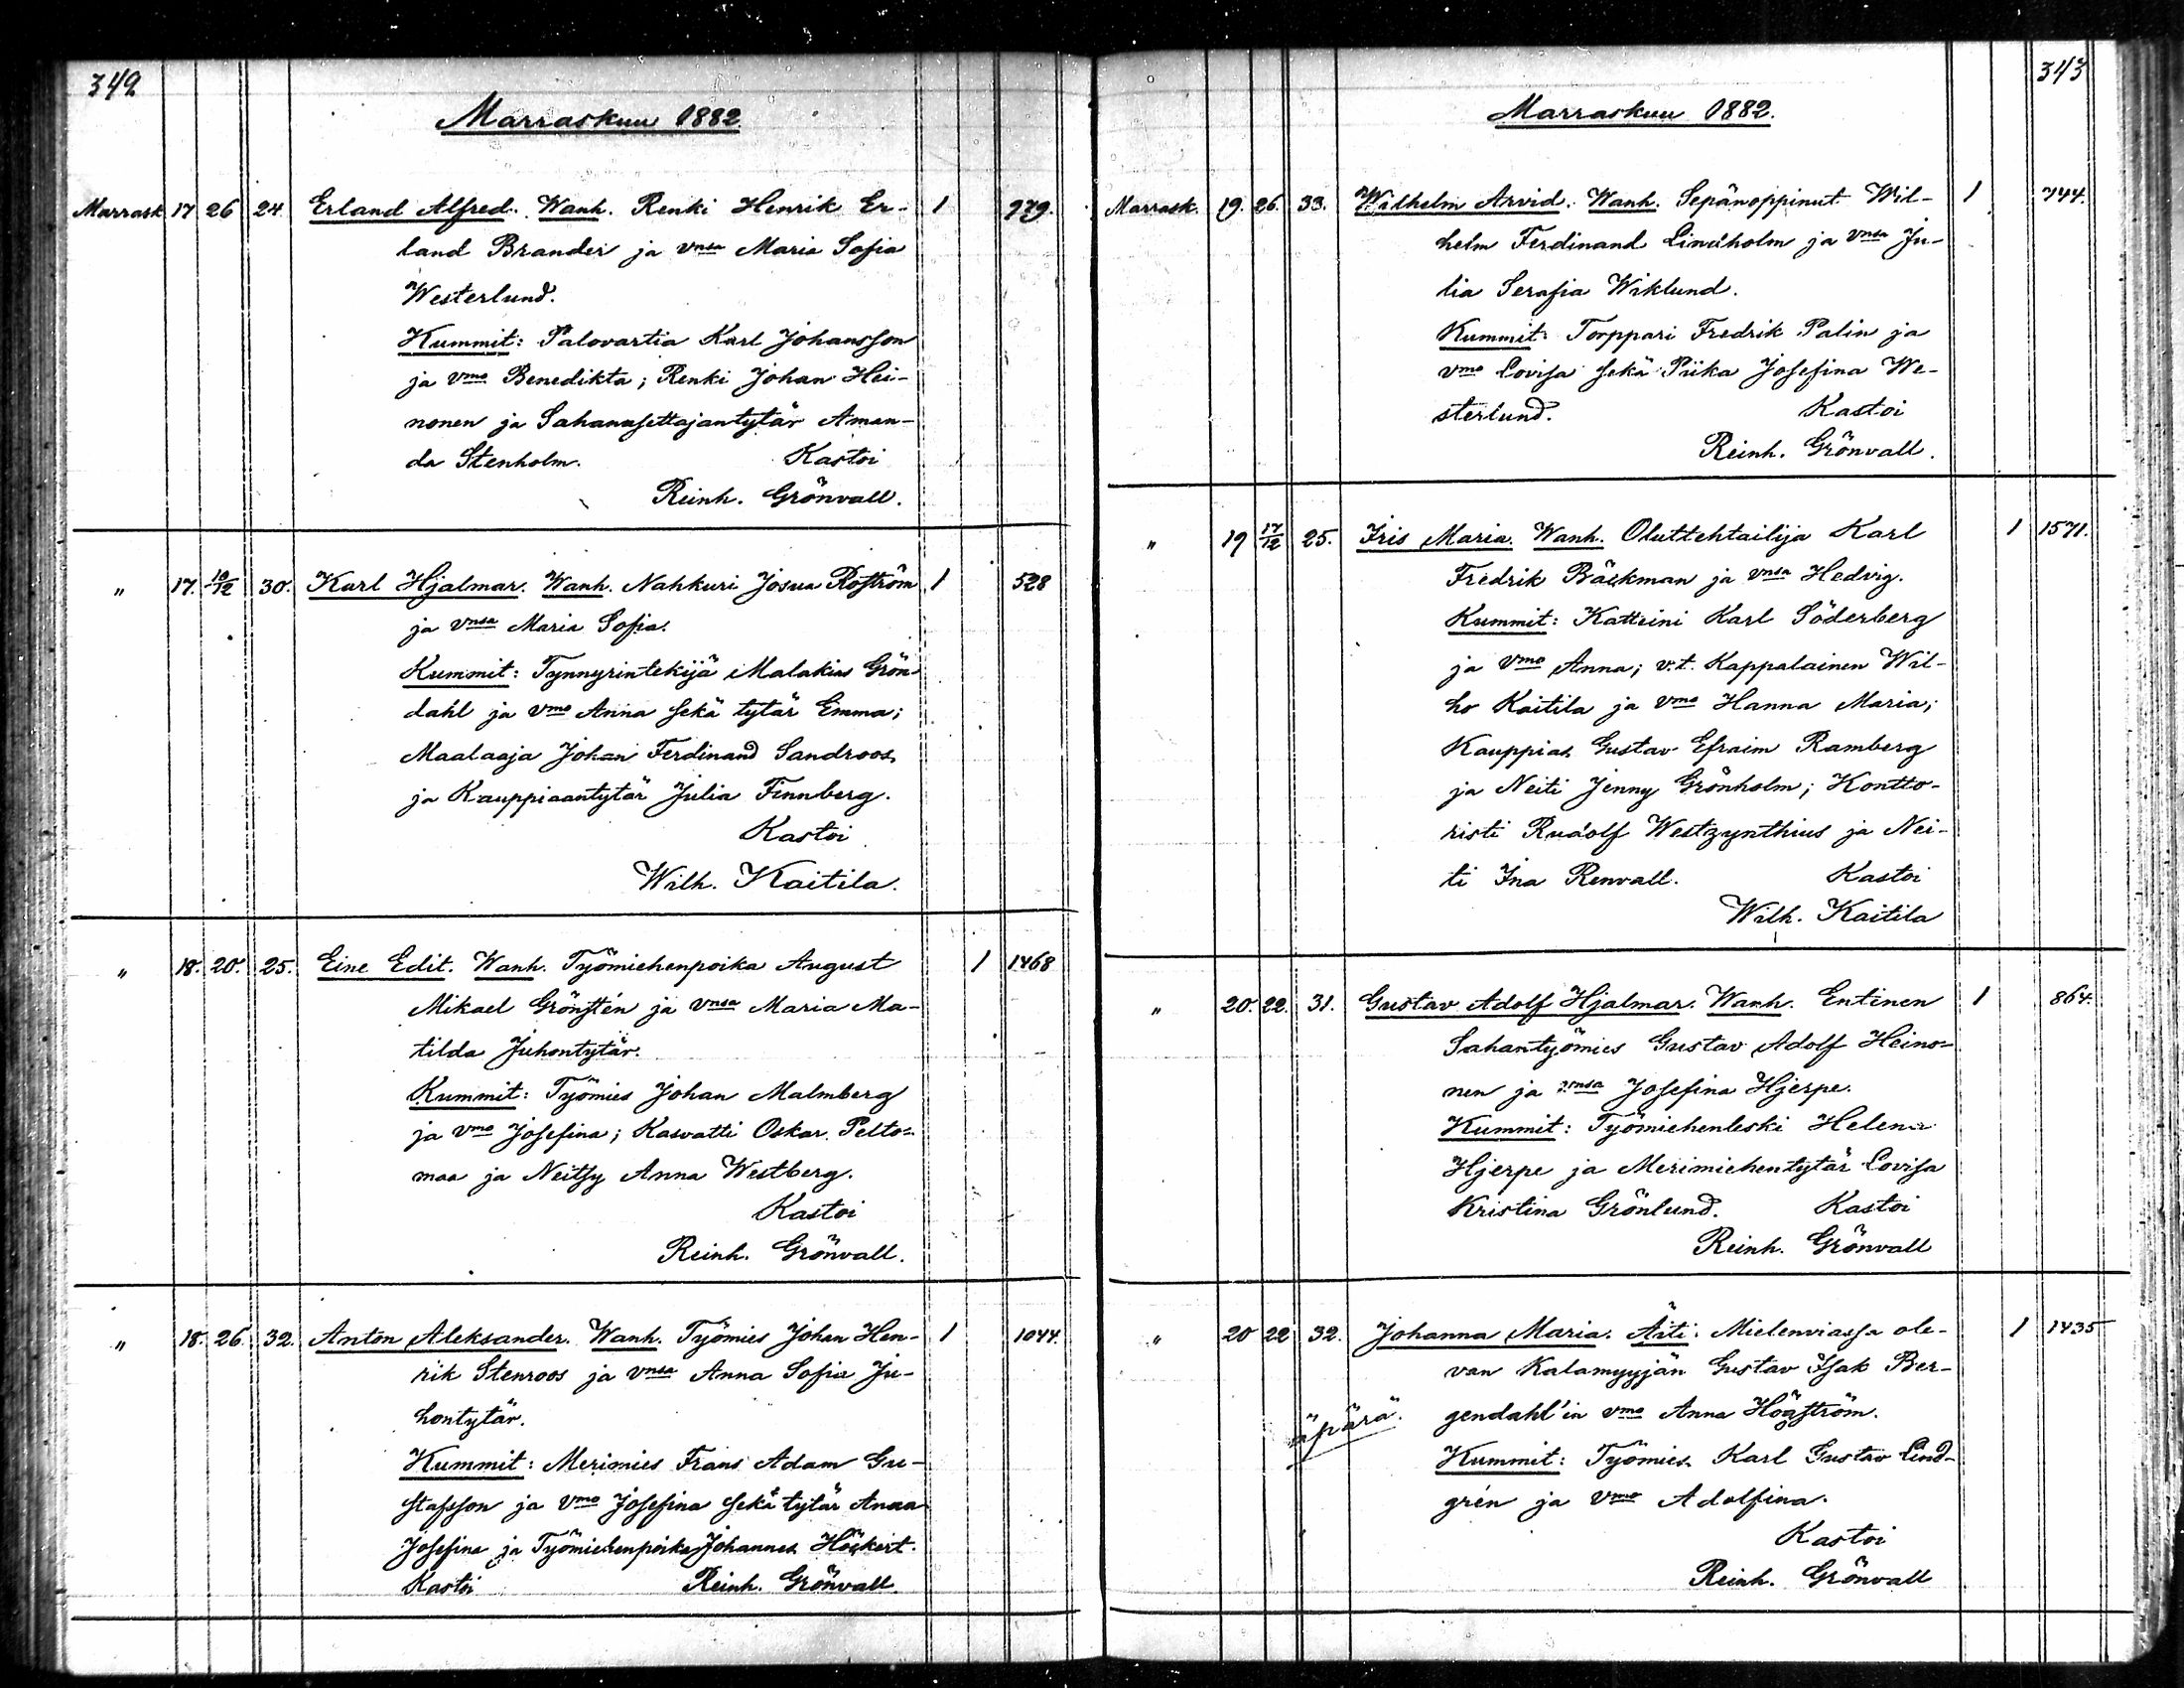 342
Marraskuu 1882
Marrask 17 26 24. Erland Alfred. Wanh. Renki Henrik Er- 1 779.
land Brander ja vnsa Maria Sofia
Westerlund.
Kummit: Palovartia Karl Johansson
ja vmo Benedikta; Renki Johan Hei-
nonen ja Sahanasettajantytär Aman-
da Stenholm. Kastoi
Reinh. Grönvall.
" 17. 10/12 30. Karl Hjalmar. Wanh. Nahkuri Josua Roström 1 528
ja vnsa Maria Sofia.
Kummit: Tynnyrintekijä Malakias Grön-
dahl ja vmo Anna sekä tytär Emma;
Maalaaja Johan Ferdinand Sandroos
ja Kauppiaantytär Julia Finnberg.
Kastoi
Wilh. Kaitila.
" 18. 20. 25. Eine Edit. Wanh. Työmiehenpoika August 1 1468
Mikael Grönstén ja vnsa Maria Ma-
tilda Juhontytär.
Kummit: Työmies Johan Malmberg
ja vmo Josefina; Kasvatti Oskar Pelto-
maa ja Neitsy Anna Westberg.
Kastoi
Reinh. Grönvall.
" 18. 26. 32. Anton Aleksander. Wanh. Työmies Johan Hen- 1 1044.
rik Stenroos ja vnsa Anna Sofia Ju-
hontytär.
Kummit: Merimies Frans Adam Gu-
stafsson ja vmo Josefina sekä tytär Anna
Josefina ja Työmiehenpoika Johannes Höckert.
Kastoi Reinh. Grönvall.
343
Marraskuu 1882.
Marrask. 19. 26. 33. Wilhelm Arvid. Wanh. Sepänoppinut Wil- 1 744.
helm Ferdinand Lindholm ja vnsa Ju-
lia Serafia Wiklund.
Kummit: Torppari Fredrik Palin ja
vmo Lovisa sekä Piika Josefina We-
sterlund. Kastoi
Reinh. Grönvall.
" 19 17/12 25. Iris Maria. Wanh. Oluttehtailija Karl 1 1571.
Fredrik Bäckman ja vnsa Hedvig.
Kummit: Katteini Karl Söderberg
ja vmo Anna; v.t. Kappalainen Wil-
ho Kaitila ja vmo Hanna Maria;
Kauppias Gustav Efraim Ramberg
ja Neiti Jenny Grönholm; Kontto-
risti Rudolf Westzynthius ja Nei-
ti Ina Renvall. Kastoi
Wilh. Kaitila
" 20. 22. 31. Gustav Adolf Hjalmar. Wanh. Entinen 1 864.
Sahantyömies Gustav Adolf Heino-
nen ja vnsa Josefina Hjerpe.
Kummit: Työmiehenleski Helena
Hjerpe ja Merimiehentytär Lovisa
Kristina Grönlund. Kastoi
Reinh. Grönvall
" 20 22 32. Johanna Maria. Äiti: Mielenviassa ole- 1 1435
van Kalamyyjän Gustav Isak Ber-
äpärä. gendahl'in vmo Anna Högström.
Kummit: Työmies Karl Gustav Lind-
grén ja vmo Adolfina.
Kastoi
Reinh. Grönvall